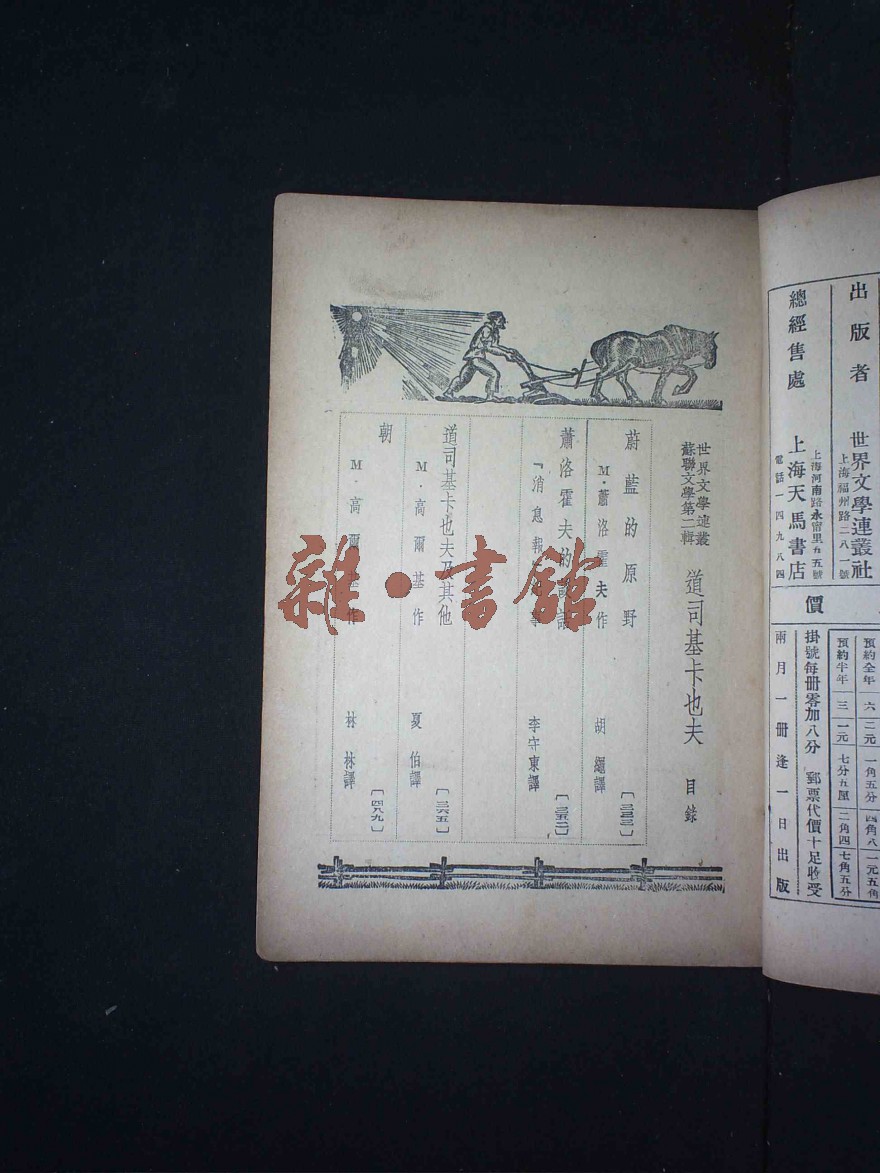 出版者 世界文學連叢社
上海福州路二八一號
總經售處 上海天馬書店
上海河南路永甯里五五號
電話一四九八四
價
預約全年 六 二元 一角五分 四角八 一元五角
預約半年 三 一元 七分五厘 二角四 七角五分
掛號每冊零加八分 郵票代價十足收受
兩月一冊逢一日出版
世界文學連叢
蘇聯文學第二輯
道司基卡也夫 目錄
蔚藍的原野
M·蕭洛霍夫作 胡繩譯
[二三三]
蕭洛霍夫的
『消息報 李守東譯
[二五二]
道司基卡也夫及其他
M·高爾基作 夏伯譯
[二六五]
朝
M·高爾基作 林林譯
[四八九]
雜·書館